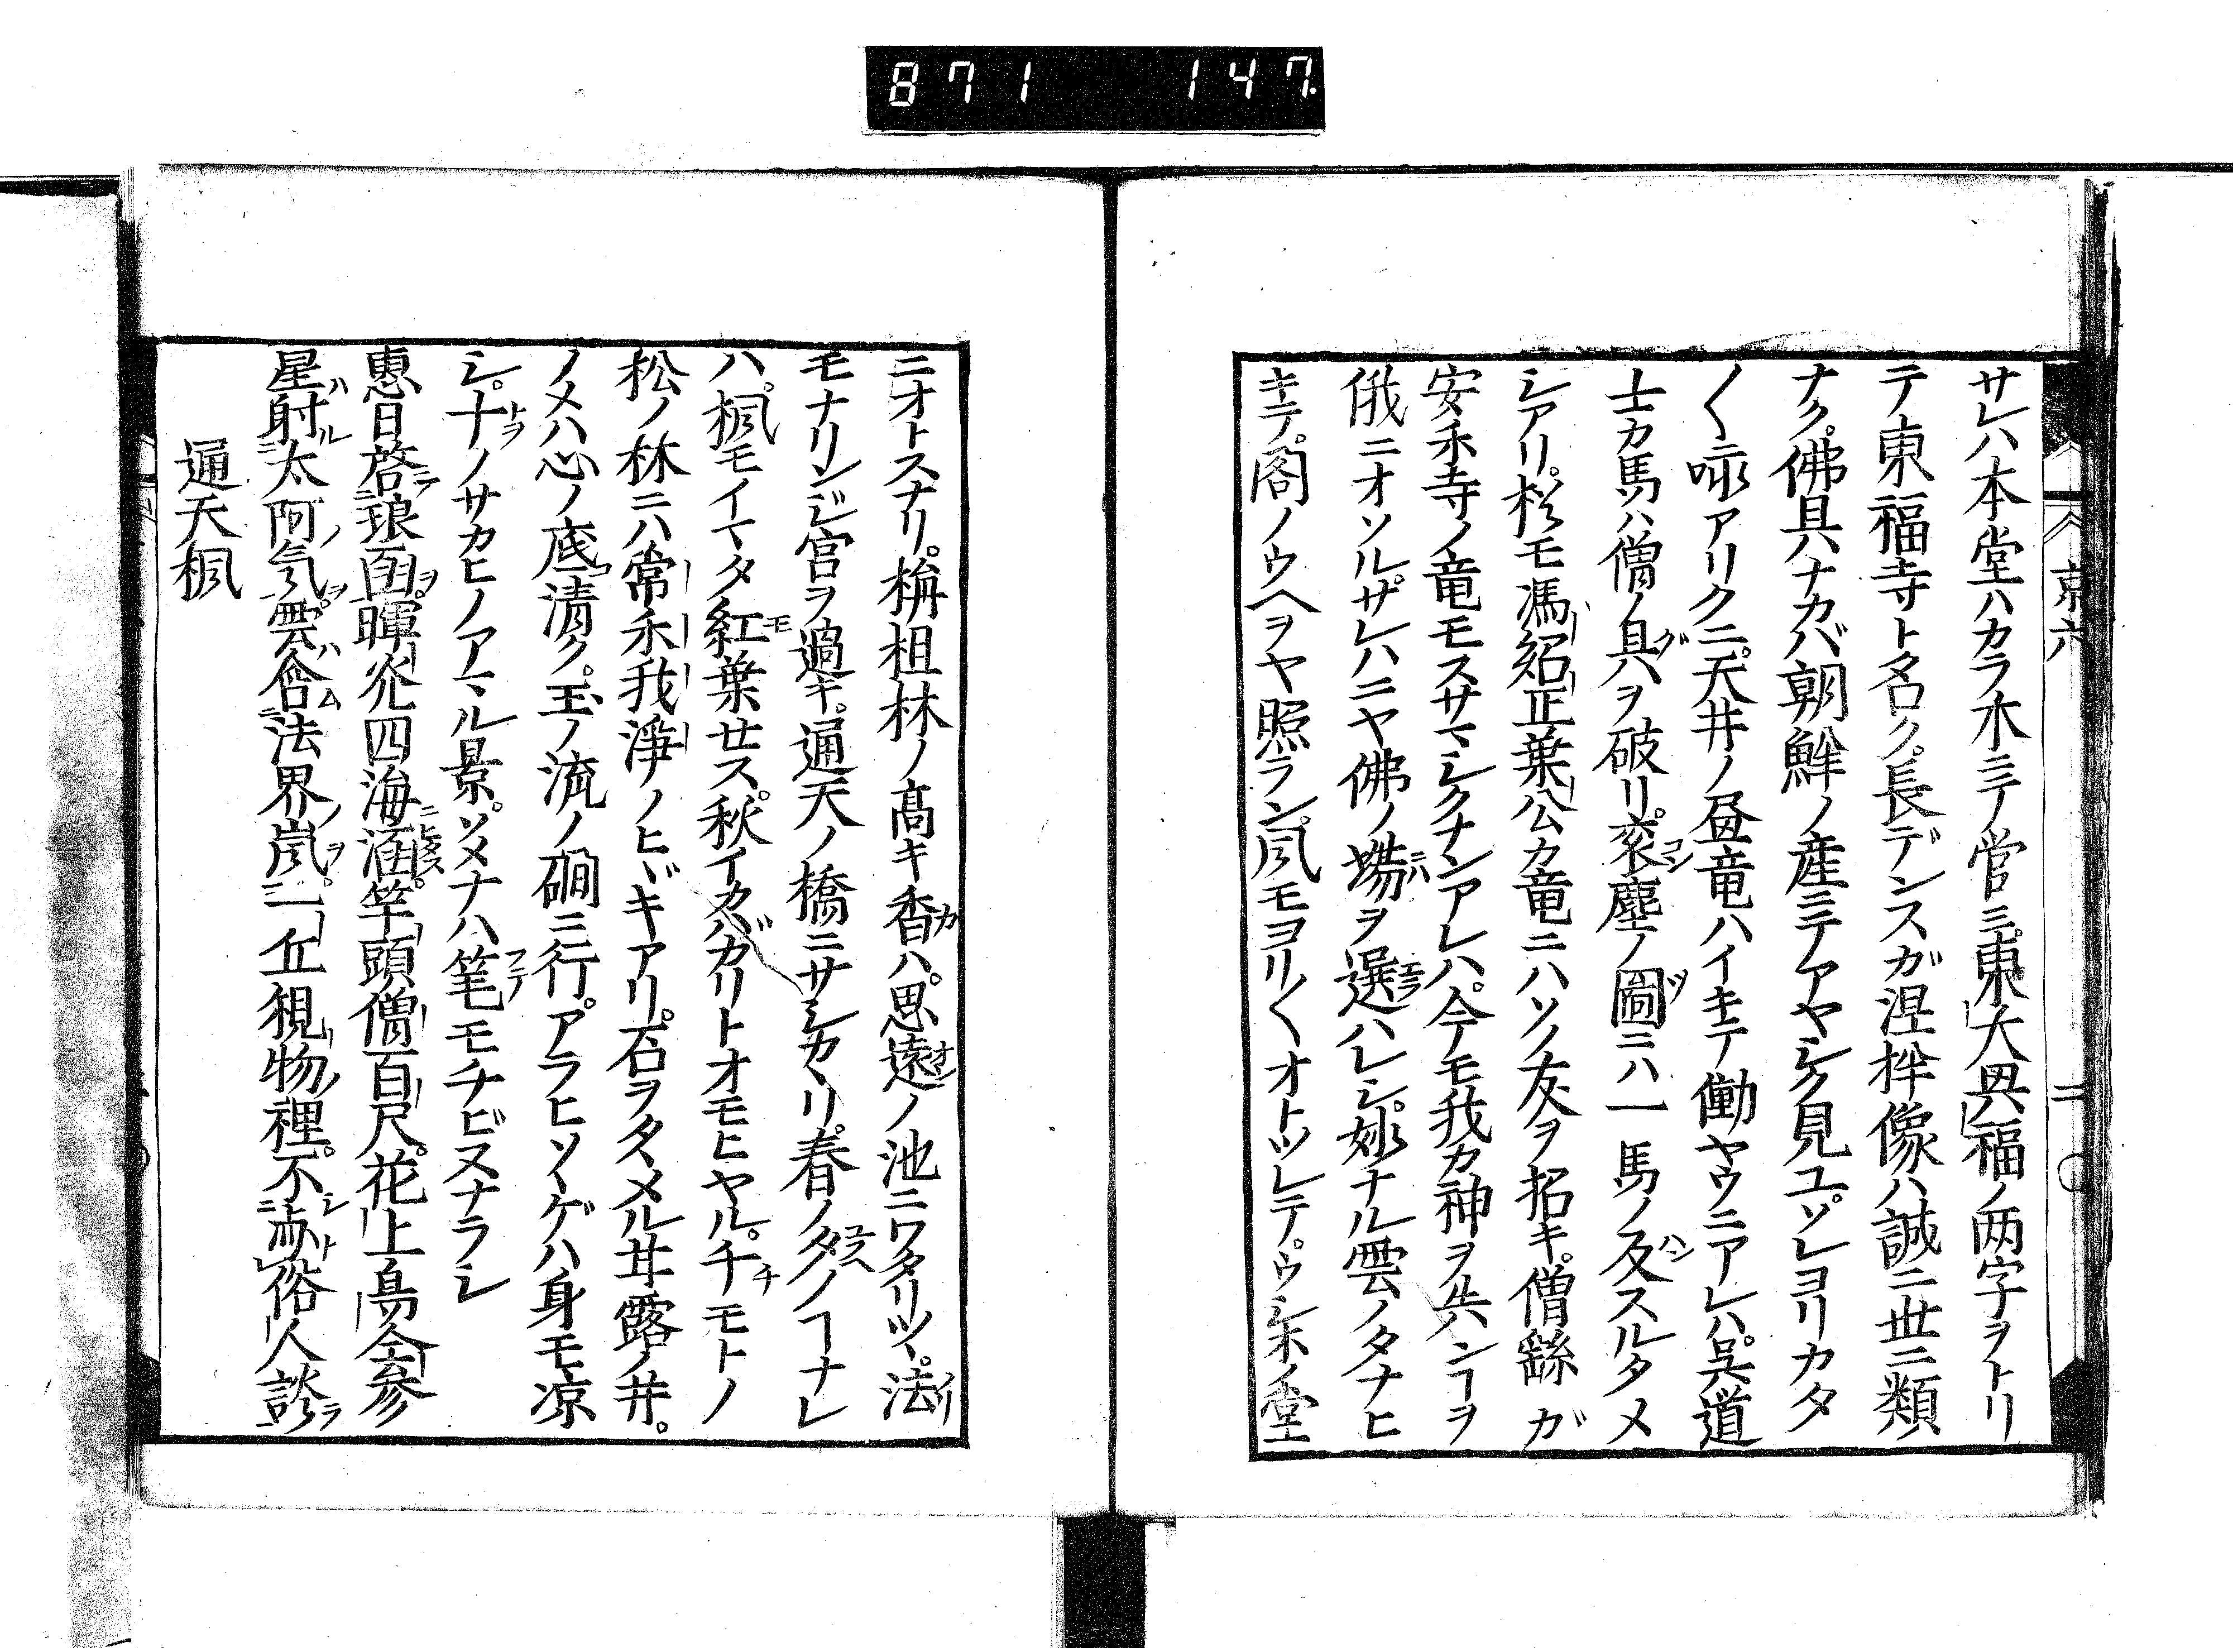 871 147
京六 二
サレハ本堂ハカラ木ニテノ営ミ東大興福ノ両字ヲトリ
テ東福寺ト名ク。長デンスガ涅槃像ハ誠ニ世ニ類
ナク。佛具ハナカバ朝鮮ノ産ニテアヤシク見ユ。ソレヨリカタ
〱詠アリクニ。天井ノ画竜ハイキテ働ヤウニアレハ。呉道
士カ馬ハ僧ノ具ヲ破リ。袞塵ノ圖ニハ一馬ノ反スルタメ
シアリ。杉モ馮紹正葉公カ竜ニハソノ友ヲ招キ。僧繇ガ
安禾寺ノ竜モスサマシクナンアレハ。今モ我カ神ヲ失ンヿヲ
俄ニオソルサレハニヤ佛ノ場ヲ選ハレシ。妙ナル雲ノタナヒ
キテ。閣ノウヘヲヤ照ラン。風モヨリ〱オトツレテ。ウシホノ堂
ニオトスナリ。栴柤林ノ髙キ香ハ。思遠ノ池ニワタリツヽ。法
モナリンジ宮ヲ過キ。通天ノ橋ニサシカヽリ。春ノ夕ノヿナレ
ハ。楓モイマタ紅葉セス。秋イカバガリトオモヒヤル。千モトノ
松ノ林ニハ常禾我淨ノヒヾギアリ。石ヲタヽメル甘露ノ井。
ノメハ心ノ底清ク。玉ノ流ノ磵ニ行。アラヒソヽゲハ身モ凉
シ。十ノサカヒノアマル景。ソメナハ筆モチビヌナラシ
惠日啓琅函。暉光四海涵。竿頭僧百尺。花上鳥会参
星射太阿気。雲含法界嵐。一丘觀物裡。不両俗人談
通天楓